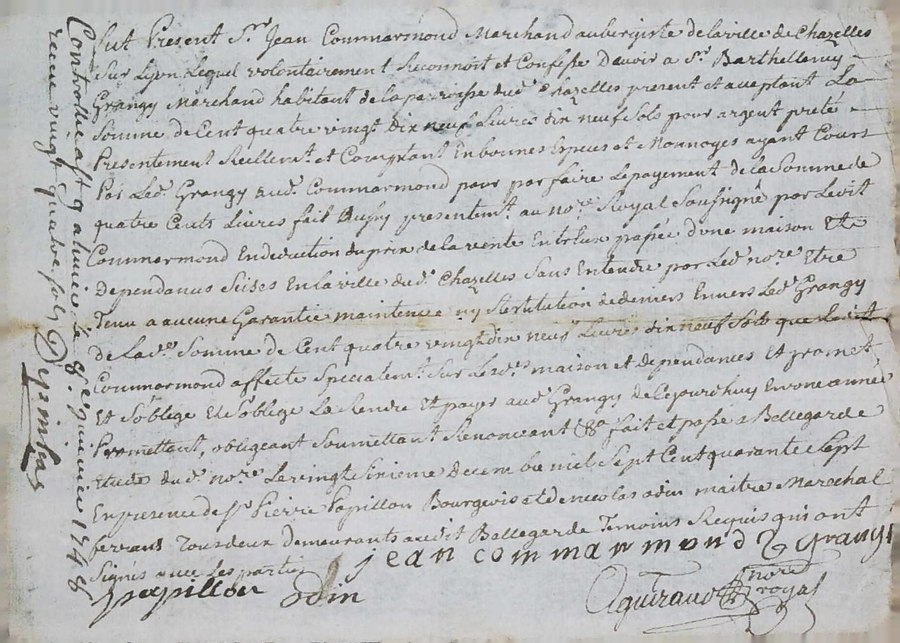 fut Present Sr. Jean Commarmond Marchand aubergiste de la ville de Chazelles
Sur Lyon Lequel volontairement Reconnoit et Confesse Devoir a Sr. Barthellemy
Grangy Marchand habitant de la parroisse dud. Chazelles present et acceptant La
Somme de Cent quatre vingt dix neuf Livres dix neuf Sols pour argent preté
Presentement Reellemt. et Comptant En bonnes Especes et Monnoyes ayant Cours
Par Led. Grangy aud. Commarmond pour parfaire Le payement de la Somme de
quatre Cents Livres fait presentemt. au nore. Royal Soussigné par Ledit
Commarmond En deduction du prix de la vente Entr'Eux passée d'une maison Et
Dependances Scises En la ville dud. Chazelles Sans Entendre par Led. nore. Etre
Tenu a aucune Garantie maintenue ny Restitution de deniers Envers Led. Grangy
de Lade. Somme de Cent quatre vingt dix neuf Livres dix neuf Sols que Ledit
Commarmond affecte Specialemt. Sur Lesdes. maison et dependances Et promet
Et S'oblige Et S'oblige La Rendre Et payer aud. Grangy de Cejourdhuy En une année
Promettant, obligeant Soumettant Renonceant &a. fait et passé a Bellegarde
Etude dud. nore. Le vingt Sixieme Decembre mil Sept Cent quarante Sept
En presence de Sr. Pierre Papillon Bourgeois et de nicolas odin maitre Marechal
ferrant Tous deux Demeurants audit Bellegarde Temoins Requis qui ont
Signés avec Les parties
jean commarmond Grangi
papillon odin
nore royal
Controllé a St galmier le 8e. janvier 1748
receu vingt quatre sols